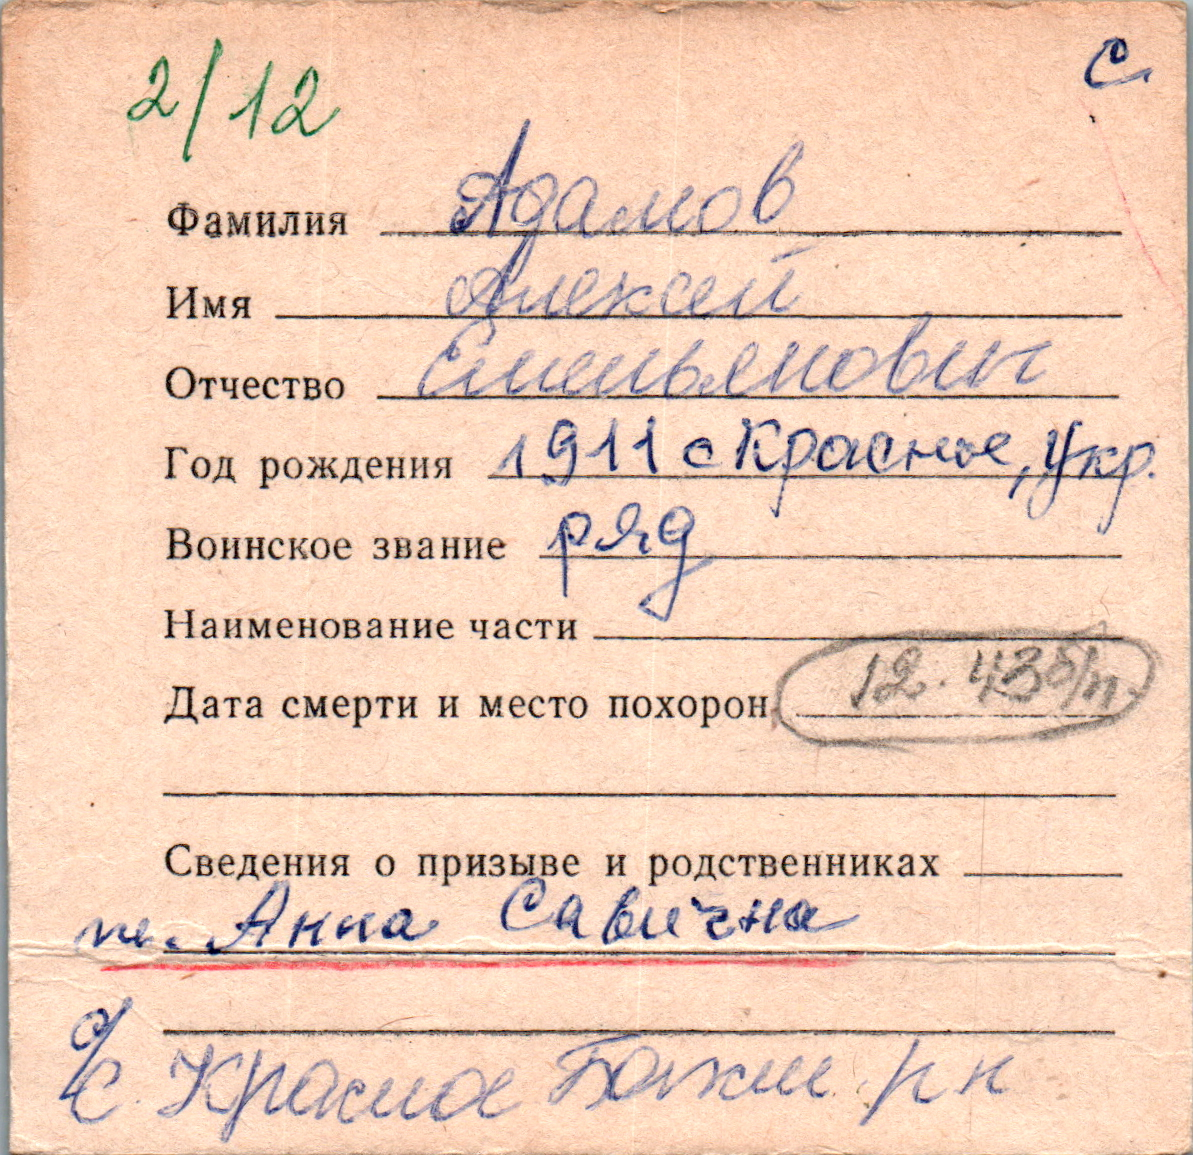 2/12
С.
Фамилия Адамов
Имя Алексей
Отчество Емельянович
Год рождения 1911 с Красное, Укр.
Воинское звание ряд
Наименование части
Дата смерти и место похорон 12.43 б/п.
Сведения о призыве и родственниках
Анна Савична
с. Красное р н